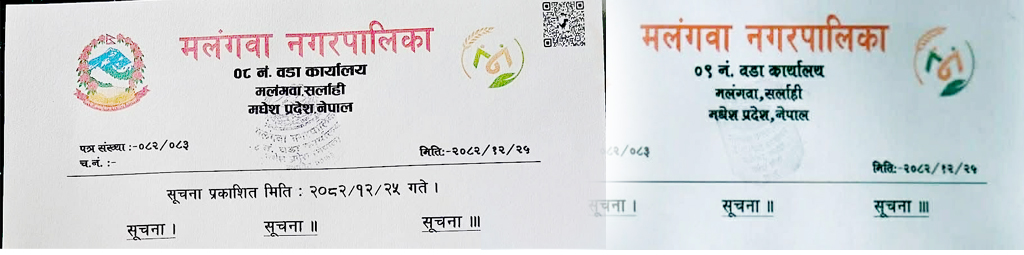 मलंगवा नगरपालिका
०८ नं. वडा कार्यालय
मलंगवा,सर्लाही
मधेश प्रदेश,नेपाल
पत्र संख्या :-०८२/०८३
च.नं. :-
मिति:-२०८२/१२/२५
सूचना प्रकाशित मिति : २०८२/१२/२५ गते ।
सूचना । सूचना ॥ सूचना ।।।
मलंगवा नगरपालिका
०९ नं. वडा कार्यालय
मलंगवा,सर्लाही
मधेश प्रदेश,नेपाल
८२/०८३
मिति:-२०८२/१२/२५
सूचना । सूचना ॥ सूचना ।।।